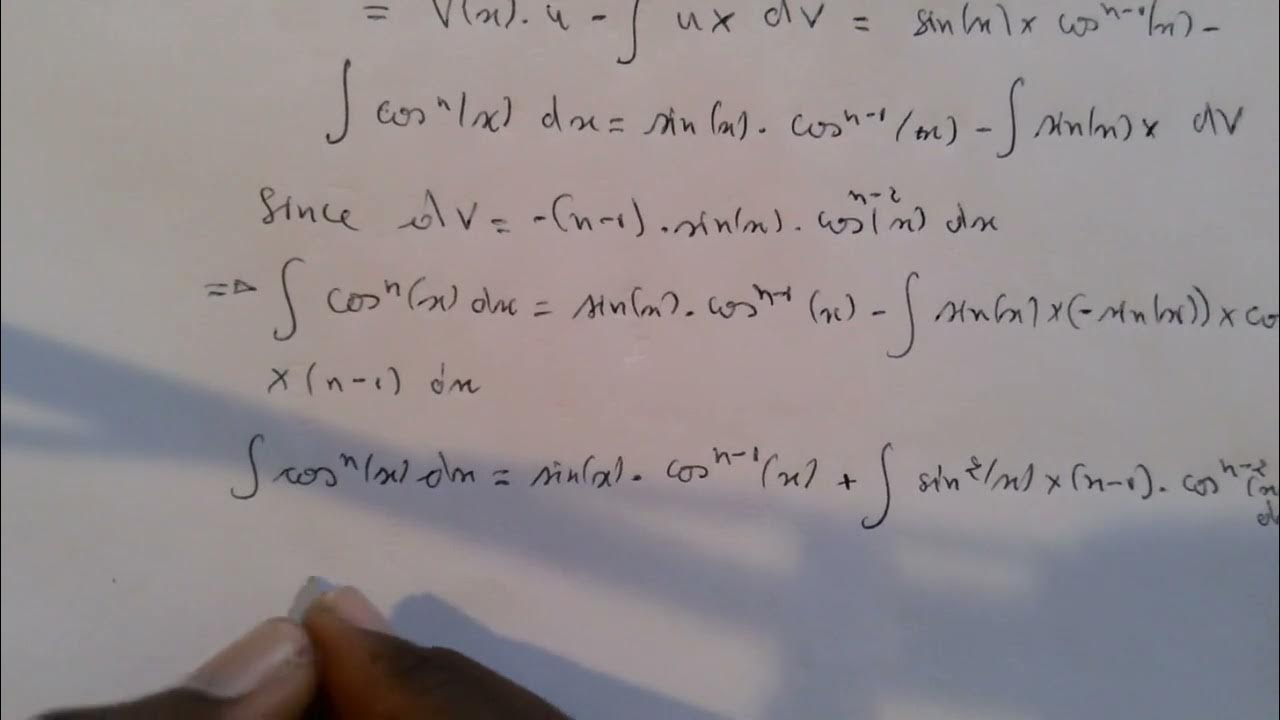 = V(x). u - ∫ u × dV = sin(x) × cosⁿ⁻¹(x) -
∫ cosⁿ(x) dx = sin(x). cosⁿ⁻¹(x) - ∫ sin(x) × dV
Since dV = -(n-1). sin(x). cosⁿ⁻²(x) dx
=> ∫ cosⁿ(x) dx = sin(x). cosⁿ⁻¹(x) - ∫ sin(x) × (-sin(x)) × co
× (n-1) dx
∫ cosⁿ(x) dx = sin(x). cosⁿ⁻¹(x) + ∫ sin²(x) × (n-1). cosⁿ⁻²(x
d